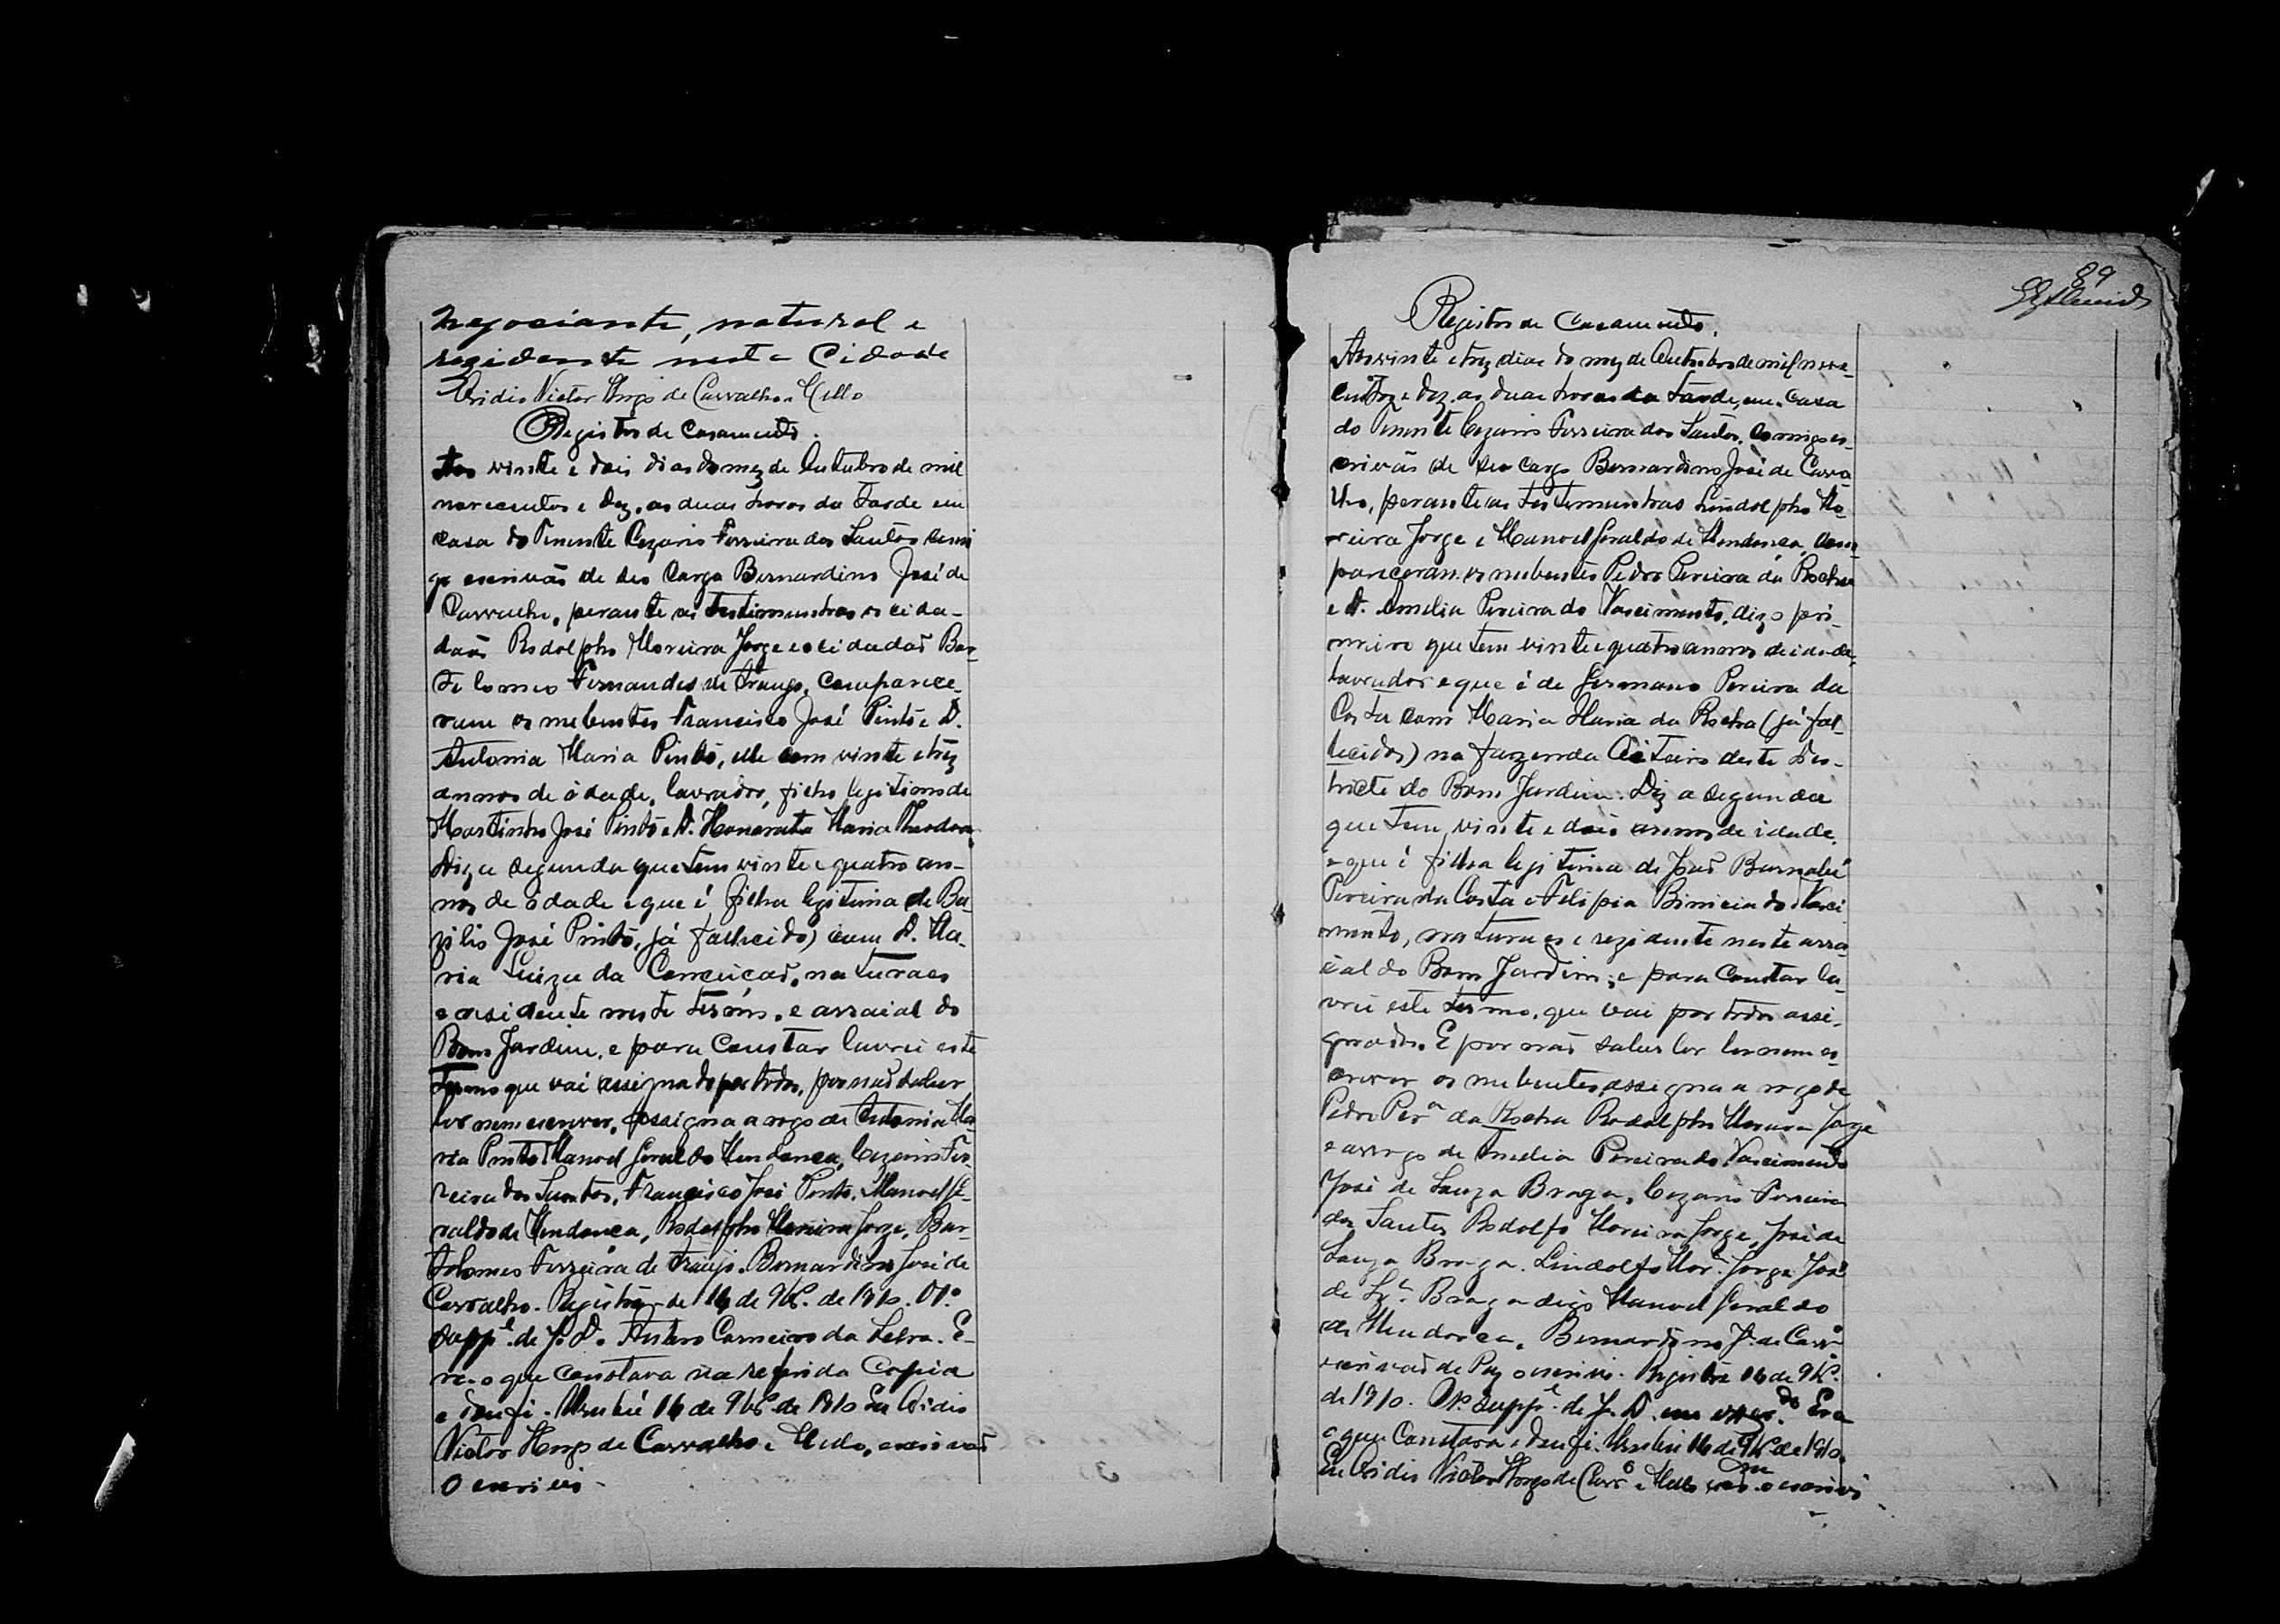 Negociante, natural e
rezidente nesta Cidade
Ovidio Victor Hugo de Carvalho e Mello
Registro de Casamento.
Aos vinte e dois dias do mez de Outubro de mil
novecentos e dez, as duas horas da tarde em
casa do Tenente Cezario Ferreira dos Santos comi
go escrivão de seo Cargo Bernardino José de
Carvalho, perante as testimunhas o cida-
dão Rodolpho Moreira Jorge e o cidadão Bar-
tolomeo Fernandes de Araujo, comparece-
ram os nubentes Francisco José Pinto e D.
Antonia Maria Pinto, elle com vinte e trez
annos de idade, lavrador, filho legitimo de
Martinho José Pinto e D. Honorata Maria Theodora
Diz a segunda que tem vinte e quatro an-
nos de idade e que é filha legitima de Ba-
zilio José Pinto, já fallecido) com D. Ma-
ria Luiza da Conceição, naturaes
e residente neste termo, e arraial do
Bom Jardim, e para constar lavrei este
Termo que vai assignado por todos, por não saber
ler nem escrever, assigna a rogo de Antonia Ma-
ria Pinto Manoel Geraldo Mendonca, Cezario Fer-
reira dos Santos, Francisco José Pinto, Manoel Ge-
raldo de Mendonca, Rodolpho Moreira Jorge, Bar-
tolomeo Ferreira de Araujo. Bernardino José de
Carvalho. Registre de 16 de 9bº. de 1910. O 1º
Supp.l de J. D. Antero Carneiro da Selva. E-
ra o que constava na referida Copia
e dou fé. Urubú 16 de 9bº. de 1910 Eu Ovidio
Victor Hugo de Carvalho e Mello, escrivão
o escrivi.
89
Registro de Casamento.
Aos vinte e trez dias do mez de Outubro de mil nove-
centos e dez, as duas horas da tarde, em casa
do Tenente Cezario Ferreira dos Santos, Comigo es-
crivão de seo cargo Bernardino José de Carva
lho, perante as testemunhas Lindolpho Mo-
reira Jorge e Manoel Geraldo de Mendonca, com-
pareceram os nubentes Pedro Pereira da Rocha
e D. Amelia Pereira do Nascimento, diz o pri-
meiro que tem vinte e quatro annos de idade,
lavrador e que é de Germano Pereira da
Costa com Maria Maria da Rocha (já fal-
lecidos) na fazenda deste Des-
tricto do Bom Jardim. Diz a segunda
que tem vinte e dois annos de idade,
e que é filha legitima de João Barnabé
Pereira da Costa e Felipia do Nasci
mento, naturaes e rezidente neste arra
ial do Bom Jardim; e para constar la-
vrei este termo, que vai por todos assi-
gnados. E por não saber ler nem es-
crever os nubentes, assigna a rogo de
Pedro Per.a da Rocha Rodolpho Moreira Jorge
e a rogo de Amelia Pereira do Nascimento
José de Souza Braga, Cezario Ferreira
dos Santos Rodolfo Moreira Jorge, José de
Souza Braga. Lindolfo Mor. Jorge José
de Sz.a Braga digo Manoel Geraldo
de Mendonca. Bernardino J. de Carv.o
escrivão de Paz o escrivi. Registre 16 de 9bº.
de 1910. O 1º Supp.l de J. D. em exer. Era
o que Constava e dou fé. Urubú 16 de 9bº de 1910.
Eu Ovidio Victor Hugo de Carv.o e Mello escm. o escrivi